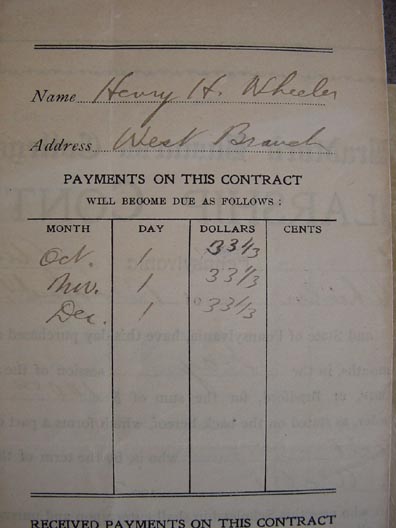 Name Henry H. Wheeler
Address West Branch
PAYMENTS ON THIS CONTRACT
WILL BECOME DUE AS FOLLOWS:
MONTH DAY DOLLARS CENTS
Oct. 1 33 1/3
Nov. 1 33 1/3
Dec. 1 33 1/3
RECEIVED PAYMENTS ON THIS CONTRACT